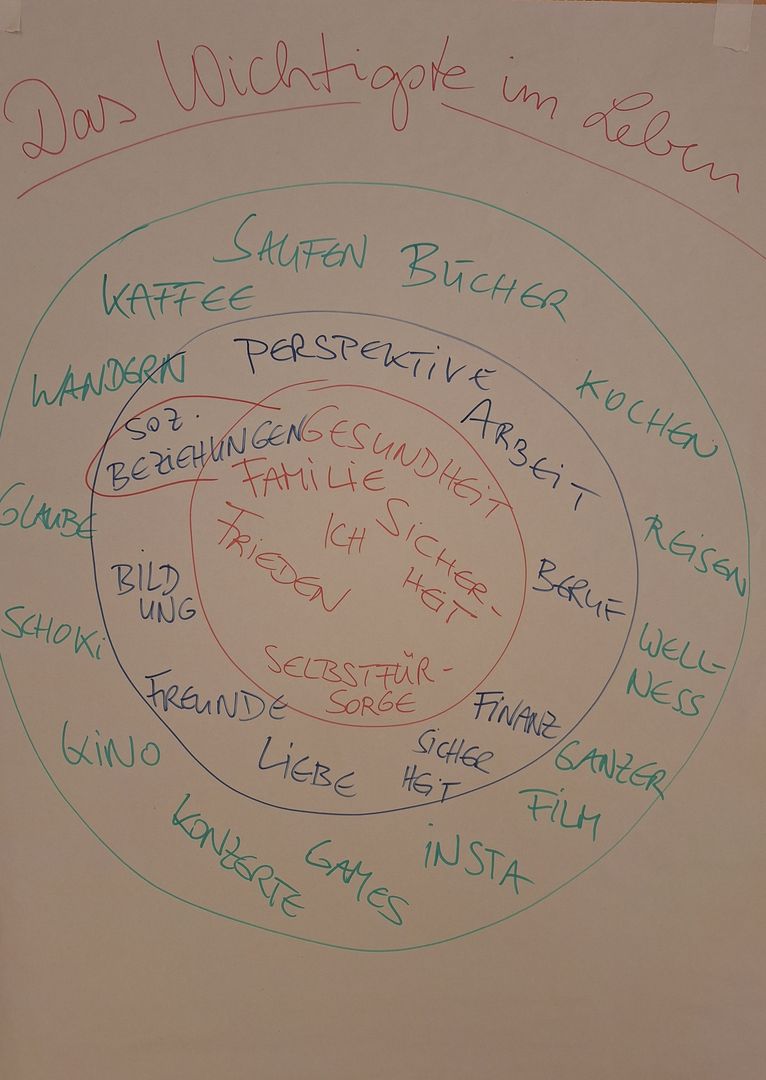 Das Wichtigste im Leben
SAUFEN
BÜCHER
KAFFEE
WANDERN
KOCHEN
GLAUBE
REISEN
SCHOKi
WELL-
NESS
KiNO
GANZER
FILM
KONZERTE
GAMES
iNSTA
PERSPEKTiVE
ARBEiT
SOZ.
BEZiEHUNGEN
BERUF
BiLD
UNG
FREUNDE
FiNANZ
SiCHER
HEiT
LiEBE
GESUNDHEiT
FAMiLiE
ICH
SiCHER-
HEiT
FRiEDEN
SELBSTFÜR-
SORGE